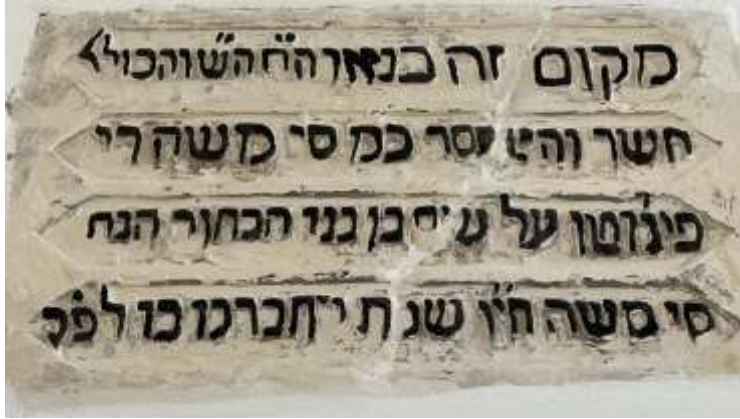 מקום זה בנאו הח״ה הש״ו והכולל
השר והט׳ עסר כמ סי משה די
פינטו על ע״ס בן בני הבחור הנח
סי משה הי״ו שנת יתברכו בו לפ״ק